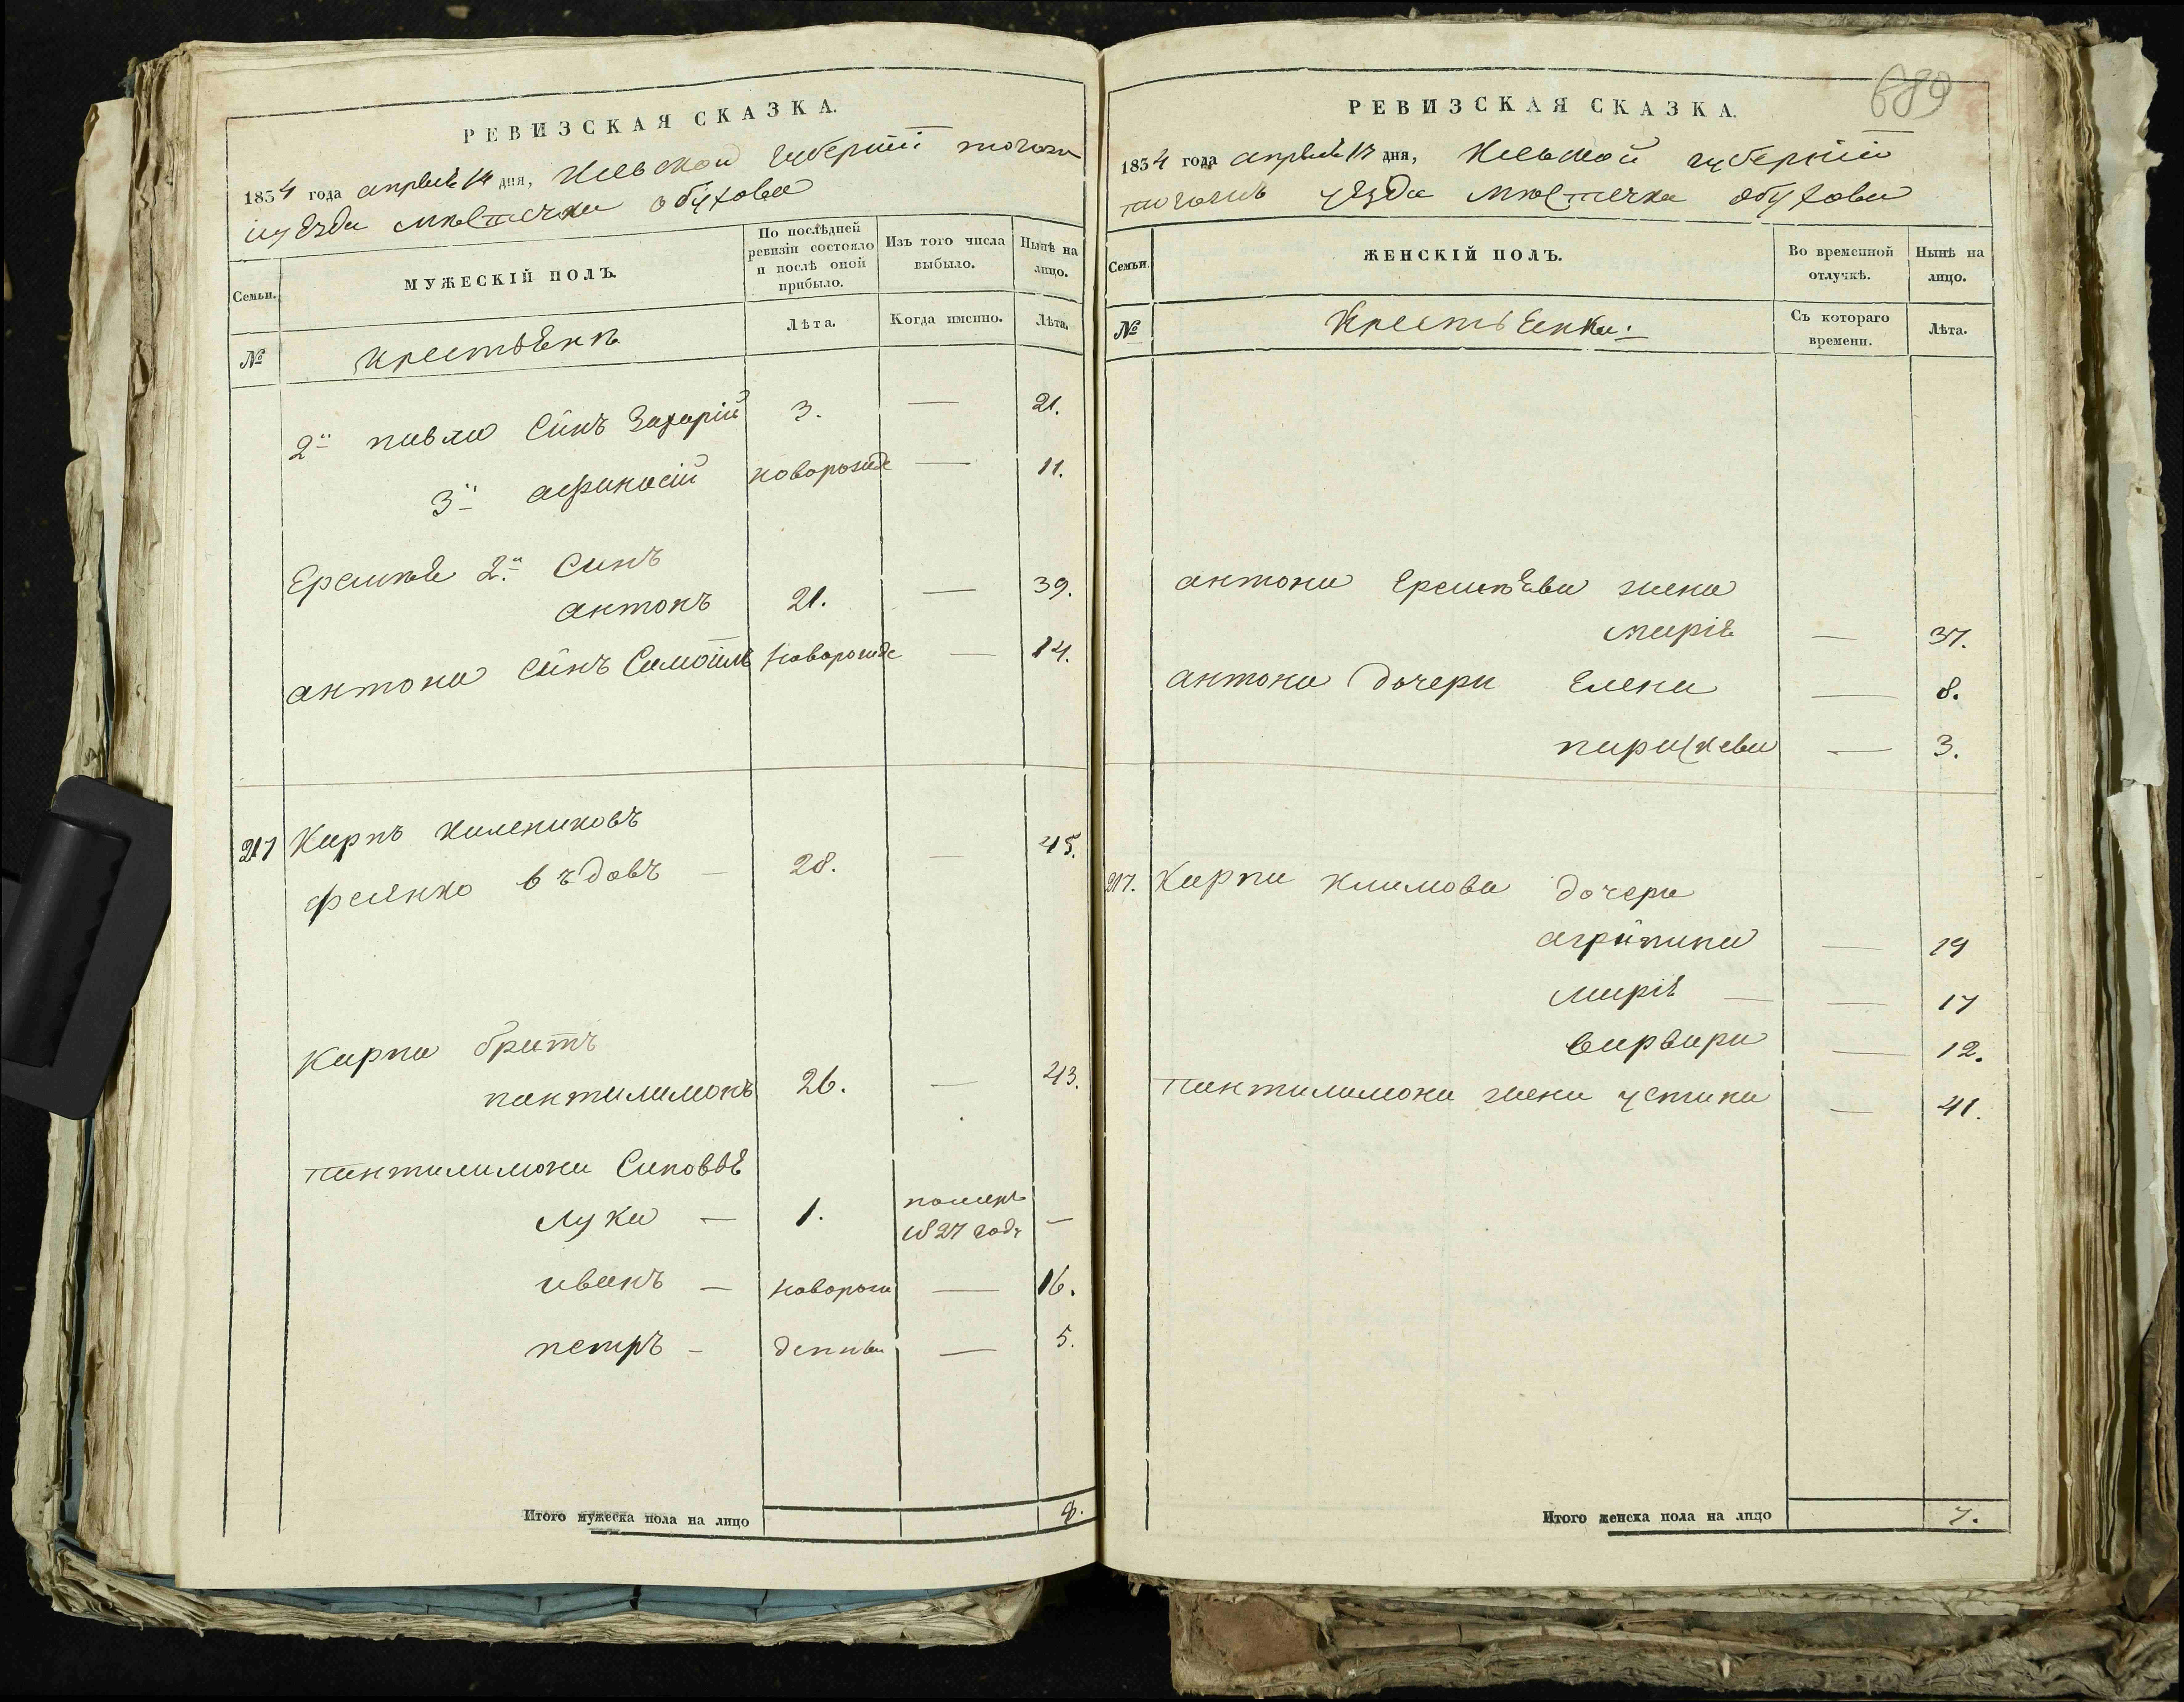 РЕВИЗСКАЯ СКАЗКА.
1834 года апреля дня, Киевской губернии тогожъ
уезда местечка обухова
Семьи.
МУЖЕСКІЙ ПОЛЪ.
По послѣдней ревизіи состояло и послѣ оной прибыло.
Изъ того числа выбыло.
Нынѣ на лицо.
№
крестьяне
Лѣта.
Когда именно.
Лѣта.
2й павла синъ Захарій 3. — 21.
3й афанасій новорожде — 11.
Еремея 2й синъ
антонъ 21. — 39.
антона синъ Самоилъ новорожде — 14.
217 Карпъ
вдовъ — 28. — 45.
Карпа братъ
пантилимонъ 26. — 43.
пантилимона Синовья
Лука — 1. померъ 1827 года —
иванъ — новорож — 16.
петръ — — 5.
Итого мужеска пола на лицо 8.
689
РЕВИЗСКАЯ СКАЗКА.
1834 года апреля дня, Киевской губерніи
тогожъ уезда местечка обухова
Семьи.
ЖЕНСКІЙ ПОЛЪ.
Во временной отлучкѣ.
Нынѣ на лицо.
№
Крестьянки.
Съ котораго времени.
Лѣта.
антона Еремеева жена
марія — 37.
антона дочери Елена — 8.
параскева — 3.
217. Карпа климова дочери
агрипина — 19
марія — — 17
варвара — 12.
пантилимона жена устина — 41.
Итого женска пола на лицо 7.